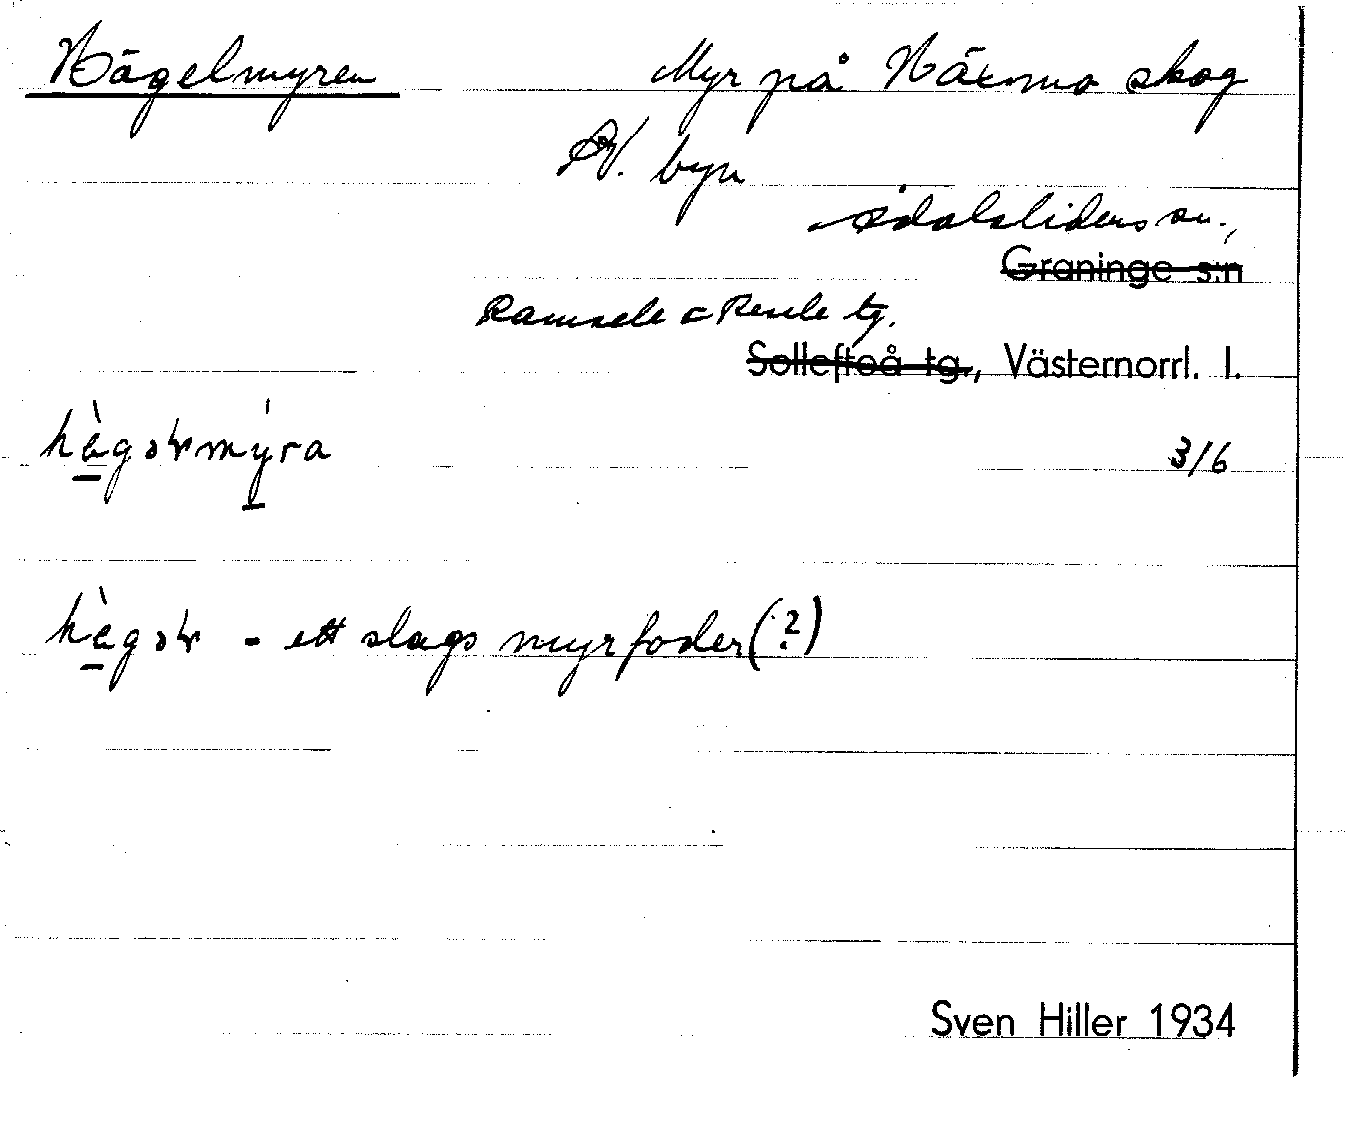 Hägelmyren Myr på Närmo skog
NV. byn
Ådalslidens sn.,
Graninge s:n
Ramsele o Resele tg.
Sollefteå tg., Västernorrl. l.
3/6
- ett slags myrfoder (?)
Sven Hiller 1934